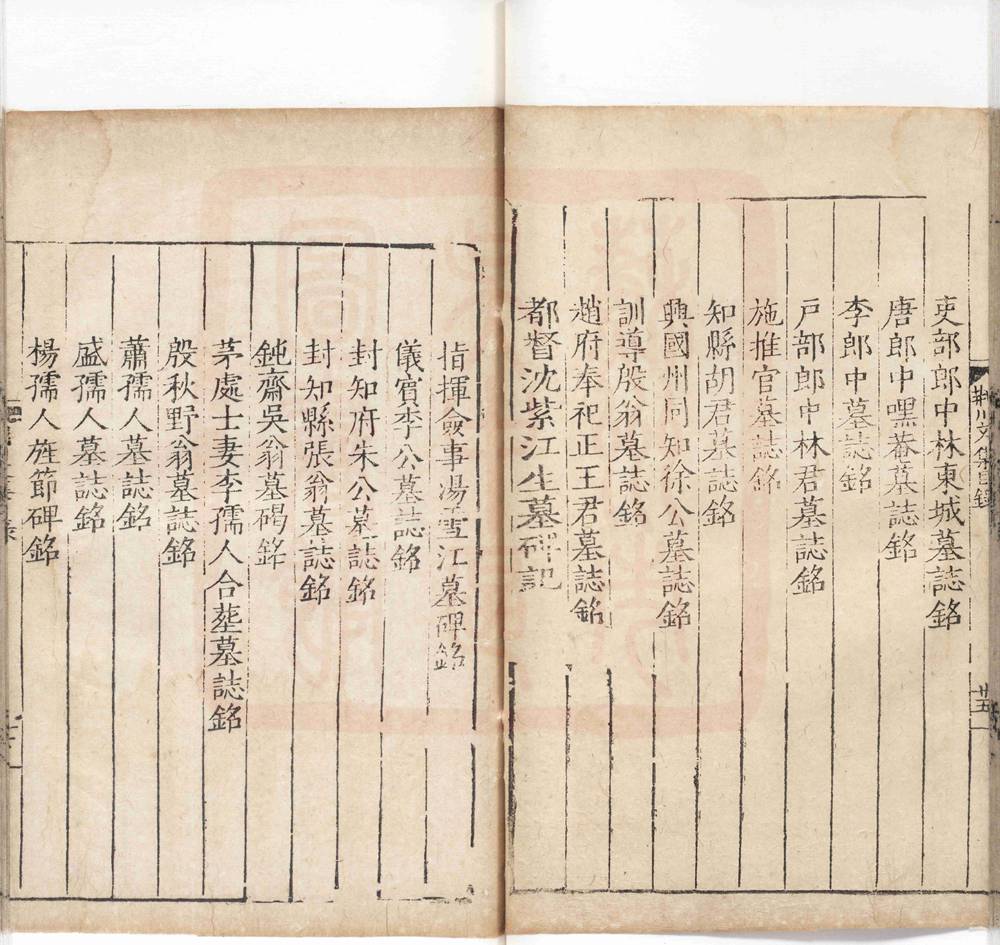 荆川文集目錄
廿五
吏部郎中林東城墓誌銘
唐郎中嘿菴墓誌銘
李郎中墓誌銘
戸部郎中林君墓誌銘
施推官墓誌銘
知縣胡君墓誌銘
興國州同知徐公墓誌銘
訓導殷翁墓誌銘
趙府奉祀正王君墓誌銘
都督沈紫江生墓碑記
指揮僉事湯雪江墓碑銘
儀賓李公墓誌銘
封知府朱公墓誌銘
封知縣張翁墓誌銘
鈍齋吳翁墓碣銘
茅處士妻李孺人合塟墓誌銘
殷秋野翁墓誌銘
蕭孺人墓誌銘
盛孺人墓誌銘
楊孺人旌節碑銘